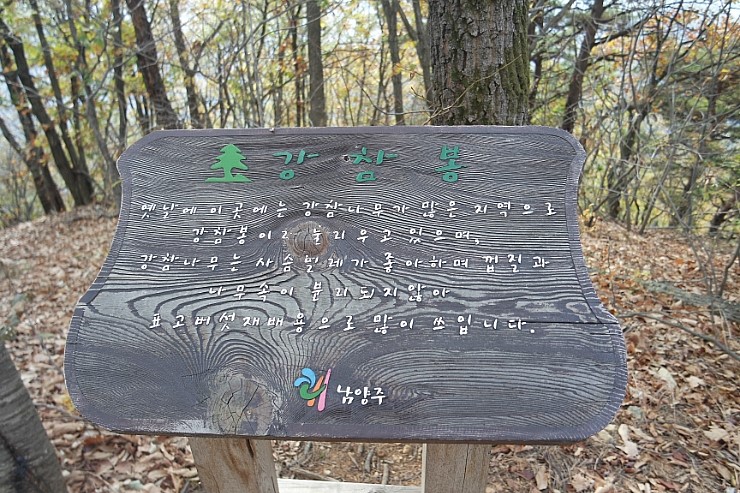 강참봉
옛날에 이곳에는 강참나무가 많은 지역으로
강참봉이라 불리우고 있으며,
강참나무는 사슴벌레가 좋아하며 껍질과
나무속이 분리되지않아
표고버섯재배용으로 많이 쓰입니다.
남양주